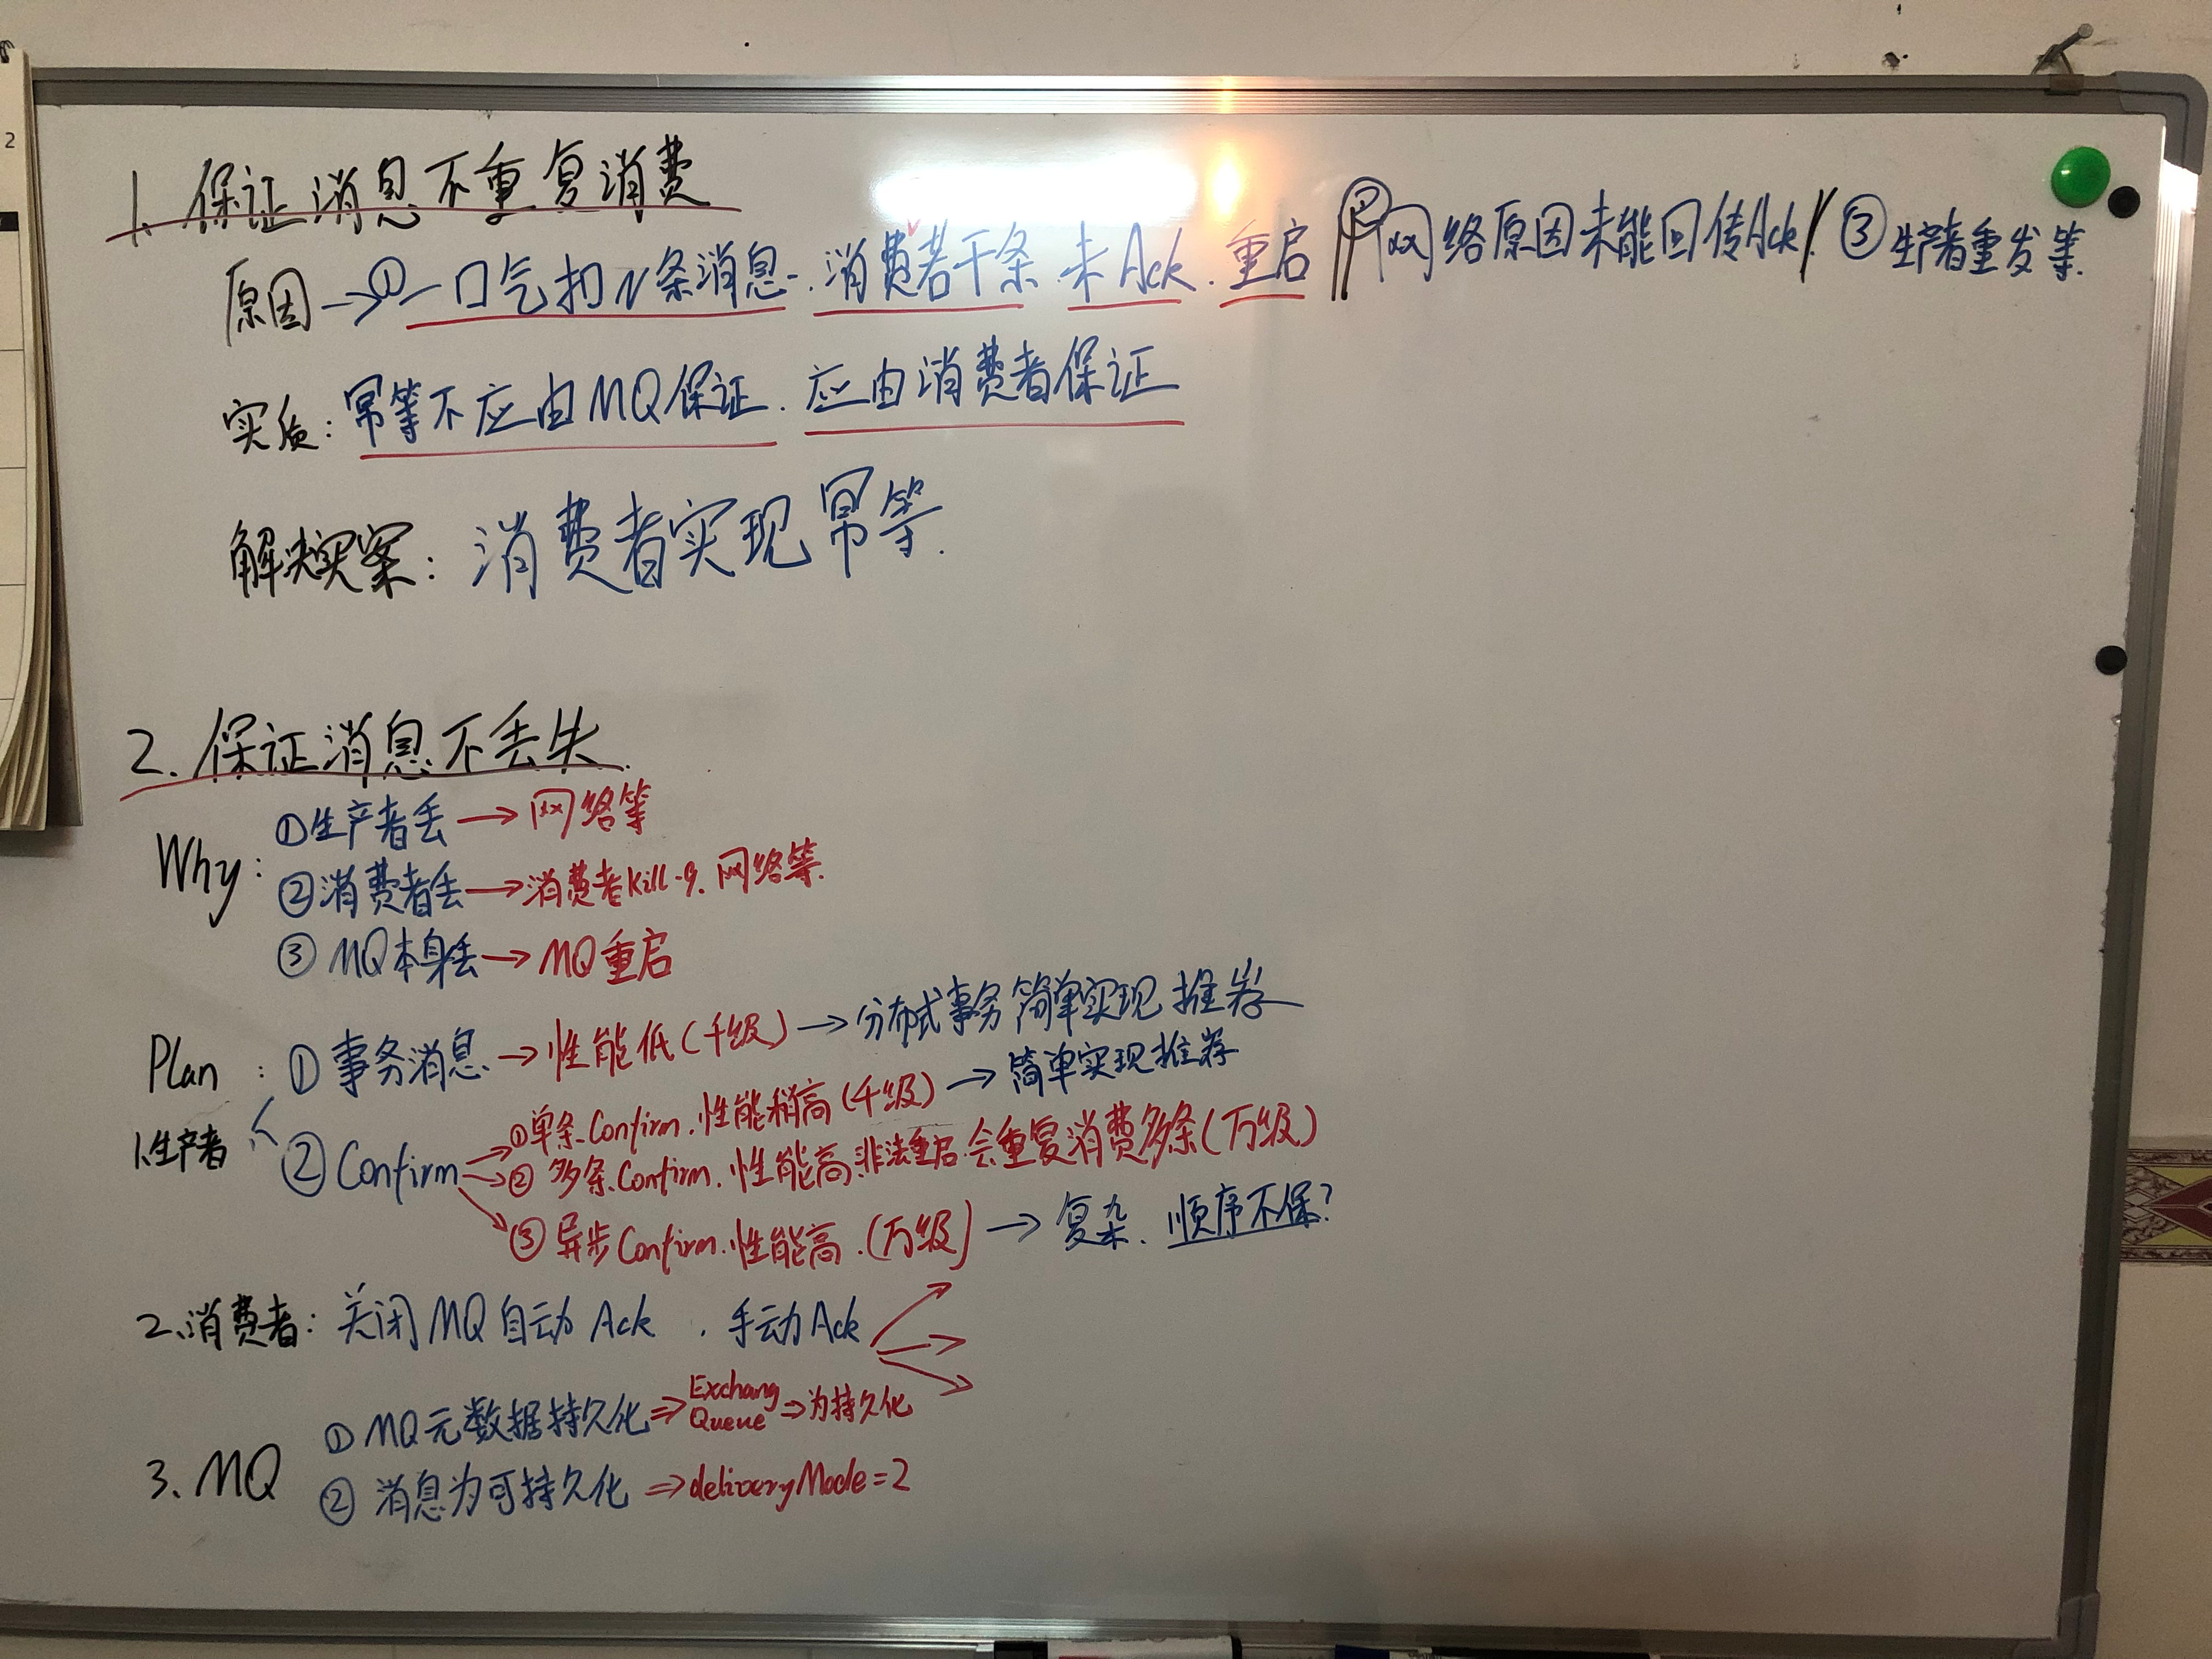 2
1、保证消息不重复消费
原因→①一口气扔N条消息.消费若干条.未Ack.重启 ②网络原因未能回传Ack/③生产者重发等.
实质:幂等不应由MQ保证.应由消费者保证
解决方案:消费者实现幂等.
2.保证消息不丢失.
Why:
①生产者丢→网络等
②消费者丢→消费者kill-9.网络等.
③MQ本身丢→MQ重启
Plan:①事务消息→性能低(千级)→分布式事务简单实现推荐
1、生产者
②Confirm
①单条Confirm.性能稍高(千级)→简单实现推荐
②多条Confirm.性能高.非法重启.会重复消费多条(万级)
③异步Confirm.性能高.(万级)→复杂.顺序不保?
2、消费者:关闭MQ自动Ack.手动Ack
3、MQ
①MQ元数据持久化⇒Exchang Queue⇒为持久化
②消息为可持久化⇒deliveryMode=2